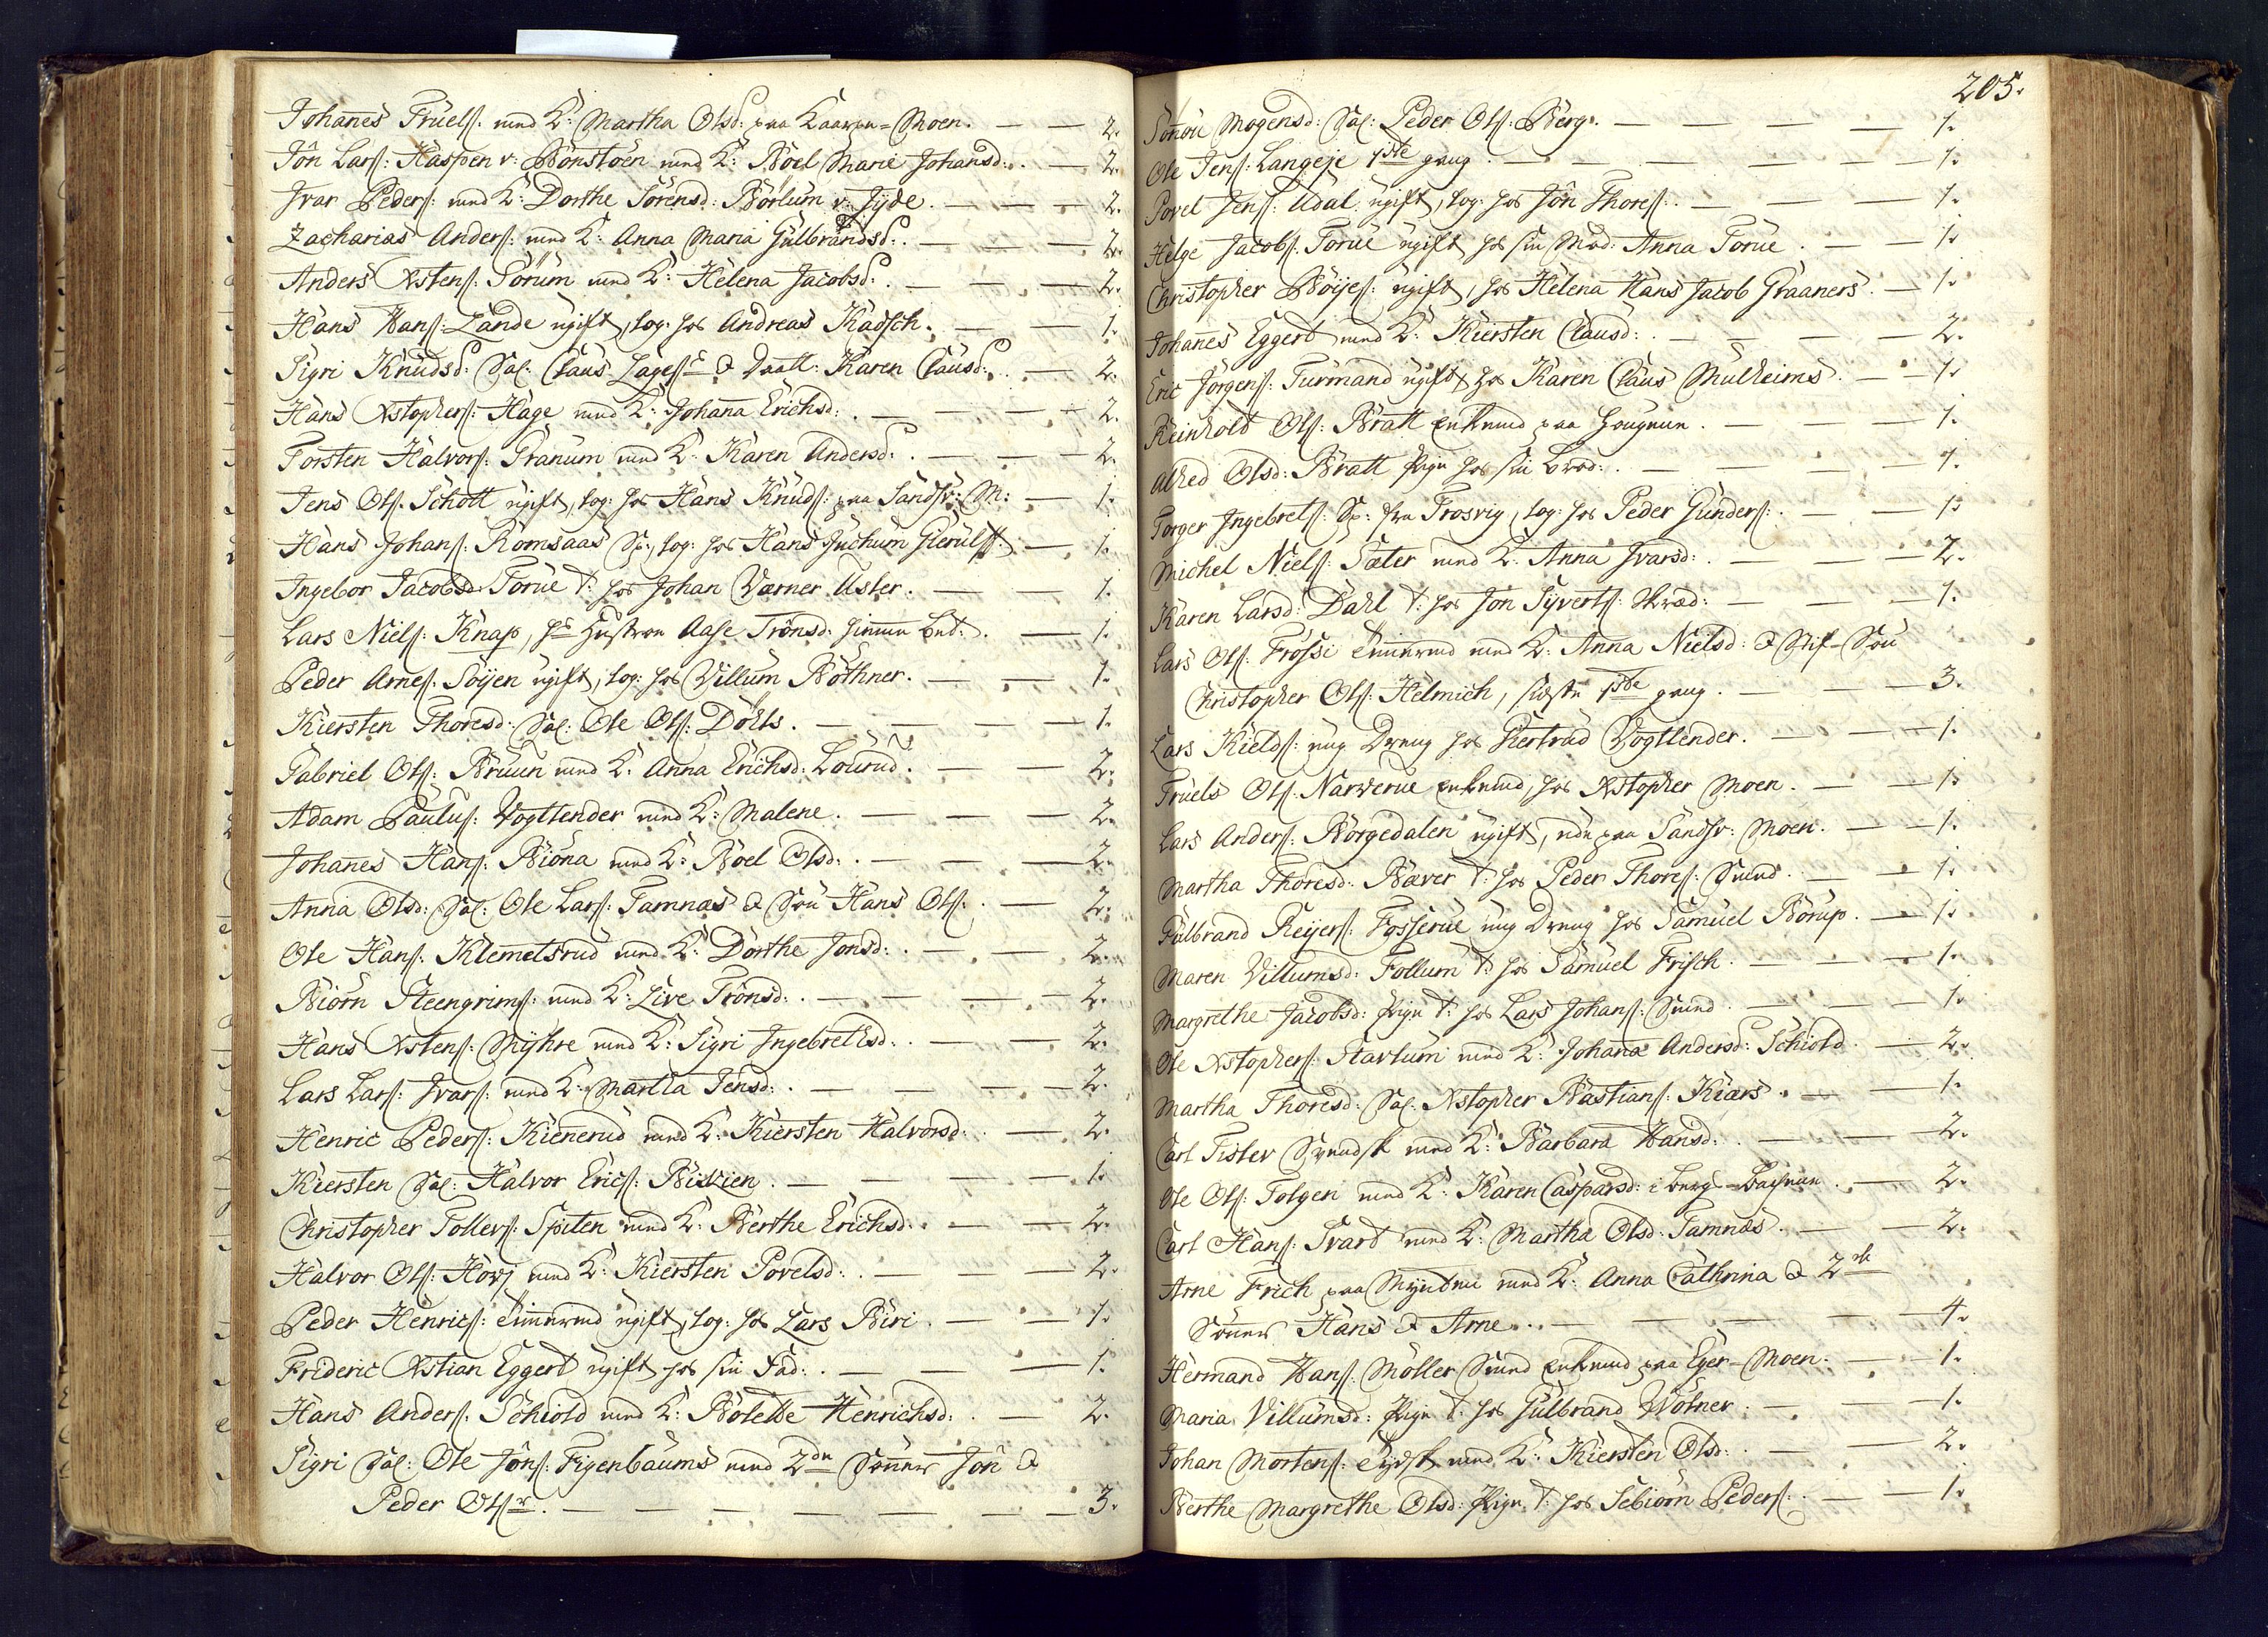 Johanes Truels: med K: Martha Olsd: paa Kaaren=Moen. 2.
Jôn Lars: Haspen v: Bönstöen med K: Boel Marie Johansd: 2.
Jvar Peders: med K: Dorthe Sörensd: Börlum v: Jyde. 2.
Zacharias Anders: med K: Anna Maria Gulbrandsd: 2.
Anders Xstens: Sörum med K: Helena Jacobsd: 2.
Hans Hans: Lande ugift, log: hos Andreas Kadsch. 1.
Sigri Knudsd: Sal: Claus Lagess & Daatt: Karen Clausd: 2.
Hans Xstophers: Hage med K: Johana Erichsd: 2.
Torsten Halvors: Granum med K: Karen Andersd: 2.
Jens Ols: Schott ugift, log: hos Hans Knuds: paa Sandsv: M: 1.
Hans Johans: Romsaas Sp:, log: hos Hans Juchum Gierulss. 1.
Ingebor Jacobsd: Torüe t: hos Johan Værner Usler. 1.
Lars Niels: Knap, hs Hustroe Aase Trônsd: himme bet: 1.
Peder Arnes: Söyen ugift, log: hos Villum Böthner. 1.
Kiersten Thoresd: Sal: Ole Ols: Döhls. 1.
Gabriel Ols: Bruun med K: Anna Erichsd: Lourud. 2.
Adam Paulus: Vogttender med K: Malene. 2.
Johanes Hans: Biöna med K: Boel Olsd: 2.
Anna Olsd: Sal: Ole Lars: Tamnæs & Sön Hans Ols: 2.
Ole Hans: Klemetsrud med K: Dorthe Jonsd: 2.
Biörn Steengrims: med K: Live Trônsd: 2.
Hans Xstens: Myhre med K: Sigri Ingebrethsd: 2.
Lars Lars: Jvars: med K: Martha Jensd: 2.
Henric Peders: Kienerud med K: Kiersten Halvorsd: 2.
Kiersten Sal: Halvor Erics: Bisvien. 1.
Christopher Tollers: Spiten med K: Berthe Erichsd: 2.
Halvor Ols: Hovj med K: Kiersten Povelsd: 2.
Peder Henrics: Timmermd ugift, log: hos Lars Biri. 1.
Frideric Xstian Eggert ugift hos sin Fad: 1.
Hans Anders: Schiold med K: Bolette Henrichsd: 2.
Sigri Sal: Ole Jôns: Figenbaums med 2de Sönner Jôn &
Peder Olsr. 3.
205.
Mogensd: Sal: Peder Ols: Berg. 1.
Ole Jens: Langeje 1ste gang. 1.
Povel Jens: Udal ugift, log: hos Jôn Thores: 1.
Helge Jacobs: Torüe ugift hos sin Mod: Anna Torüe. 1.
Christopher Böyes: ugift, hos Helena Hans Jacob Graaners. 1.
Johanes Eggert med K: Kiersten Clausd: 2.
Eric Jörgens: Turmand ugift hos Karen Claus Mulheims. 1.
Reinhold Ols: Bratt Enkemd paa Haugene. 1.
Alhed Olsd: Bratt Pige hos sin Brod: 1.
Torger Ingebrets: Sp: fra Trosvig, log: hos Peder Gunders: 1.
Michel Niels: Sæter med K: Anna Jvarsd: 2.
Karen Larsd: Dahl t: hos Jon Syverts: Skræd: 1.
Lars Ols: Frössi Timmermd med K: Anna Nielsd: & Stif=Sön
Christopher Ols: Helmich, sidste 1ste gang. 3.
Lars Kields: ung Dreng hos Giertrud Vogttender. 1.
Truels Ols: Narverüe Enkemd, hos Xstopher Moen. 1.
Lars Anders: Borgedalen ugift, ude paa Sandsv: Moen. 1.
Martha Thoresd: Bæver t: hos Peder Thores: Smed. 1.
Gulbrand Reijers: Fosserüe ung Dreng hos Samuel Borup. 1.
Maren Villumsd: Follum t: hos Samuel Frisch. 1.
Margrethe Jacobsd: Pige t: hos Lars Johans: Smed. 1.
Ole Xstophers: Starlum med K: Johana Andersd: Schiold. 2.
Martha Thoresd: Sal: Xstopher Bastians: Kiærs. 1.
Carl Fisler Svendsk med K: Barbara Hansd: 2.
Ole Ols: Tolgen med K: Karen Caspersd: i berg=bachene. 2.
Carl Hans: Svart med K: Martha Olsd: Tamnæs. 2.
Arne Frich paa Mynten med K: Anna Cathrina & 2de
Sönner Hans & Arne. 4.
Hermand Hans: Möller Smed Enkemd paa Eger=Moen. 1.
Maria Villumsd: Pige t: hos Gulbrand Wölner. 1.
Johan Mortens: Tydsk med K: Kiersten Olsd: 2.
Berthe Margrethe Olsd: Pige t: hos Sebiörn Peders: 1.